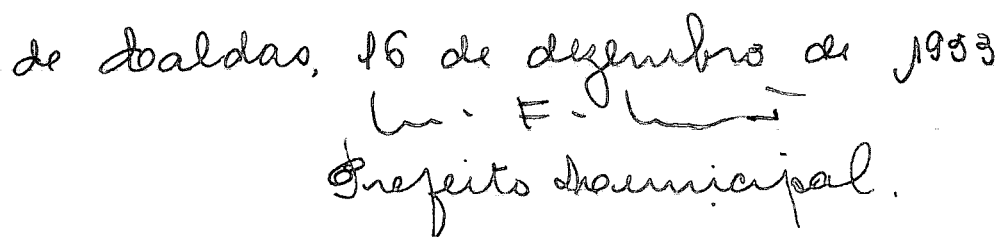 de Caldas, 16 de dezembro de 1993
Prefeito Municipal.